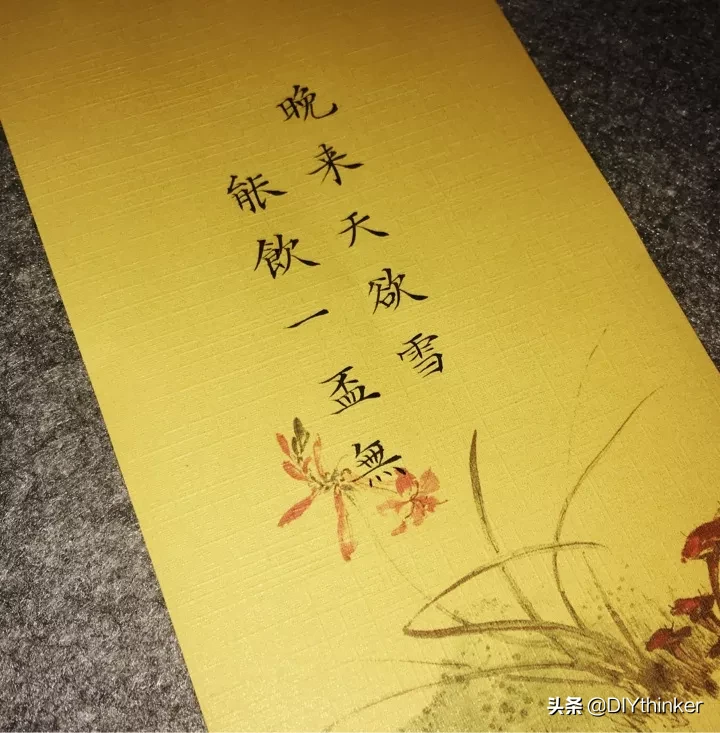 晚来天欲雪
能飲一盃無
头条 @DIYthinker